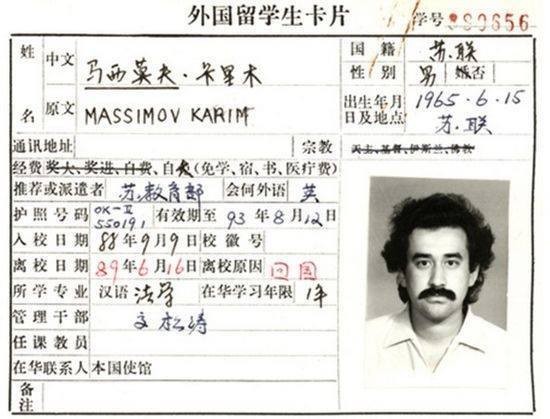 外国留学生卡片
学号 880656
姓名 中文 马西莫夫·卡里木
原文 MASSIMOV KARIM
国籍 苏.联
性别 男 婚否
出生年月日及地点 1965.6.15 苏.联
通讯地址 宗教 天主、基督、伊斯兰、佛教
经费 奖大、奖进、自费、自大(免学、宿、书、医疗费)
推荐或派遣者 苏教育部 会何外语 英
护照号码 OK-II 550191 有效期至 93年8月12日
入校日期 88年9月9日 校徽号
离校日期 89年6月16日 离校原因 回国
所学专业 汉语 法学 在华学习年限 1年
管理干部 文松涛
任课教员
在华联系人 本国使馆
备注